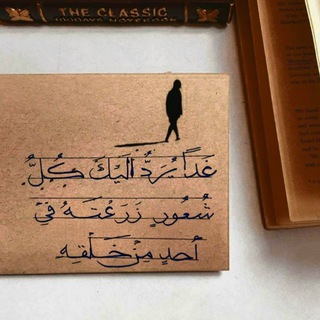 THE CLASSIC
غداً يُرَدُّ إليكَ كُلُّ
شُعُورٍ زَرَعتَهُ في
أحدٍ مِنْ خَلْقِهِ